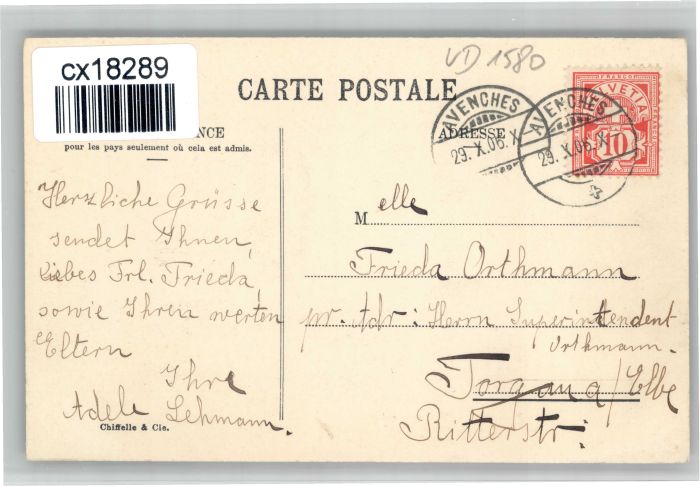 cx18289
VD 1580
CARTE POSTALE
NCE
pour les pays seulement où cela est admis.
ADRESSE
AVENCHES
29.X.06.X
AVENCHES
29.X.06.X
FRANCO
HELVETIA
10
Herzliche Grüsse
sendet Ihnen,
liebes Frl. Frieda,
sowie Ihren werten
Eltern
Ihre
Adele Lehmann.
Chiffelle & Cie.
Melle
Frieda Orthmann
pr. Adr: Herrn Superintendent
Orthmann.
Torgau a/Elbe
Ritterstr.